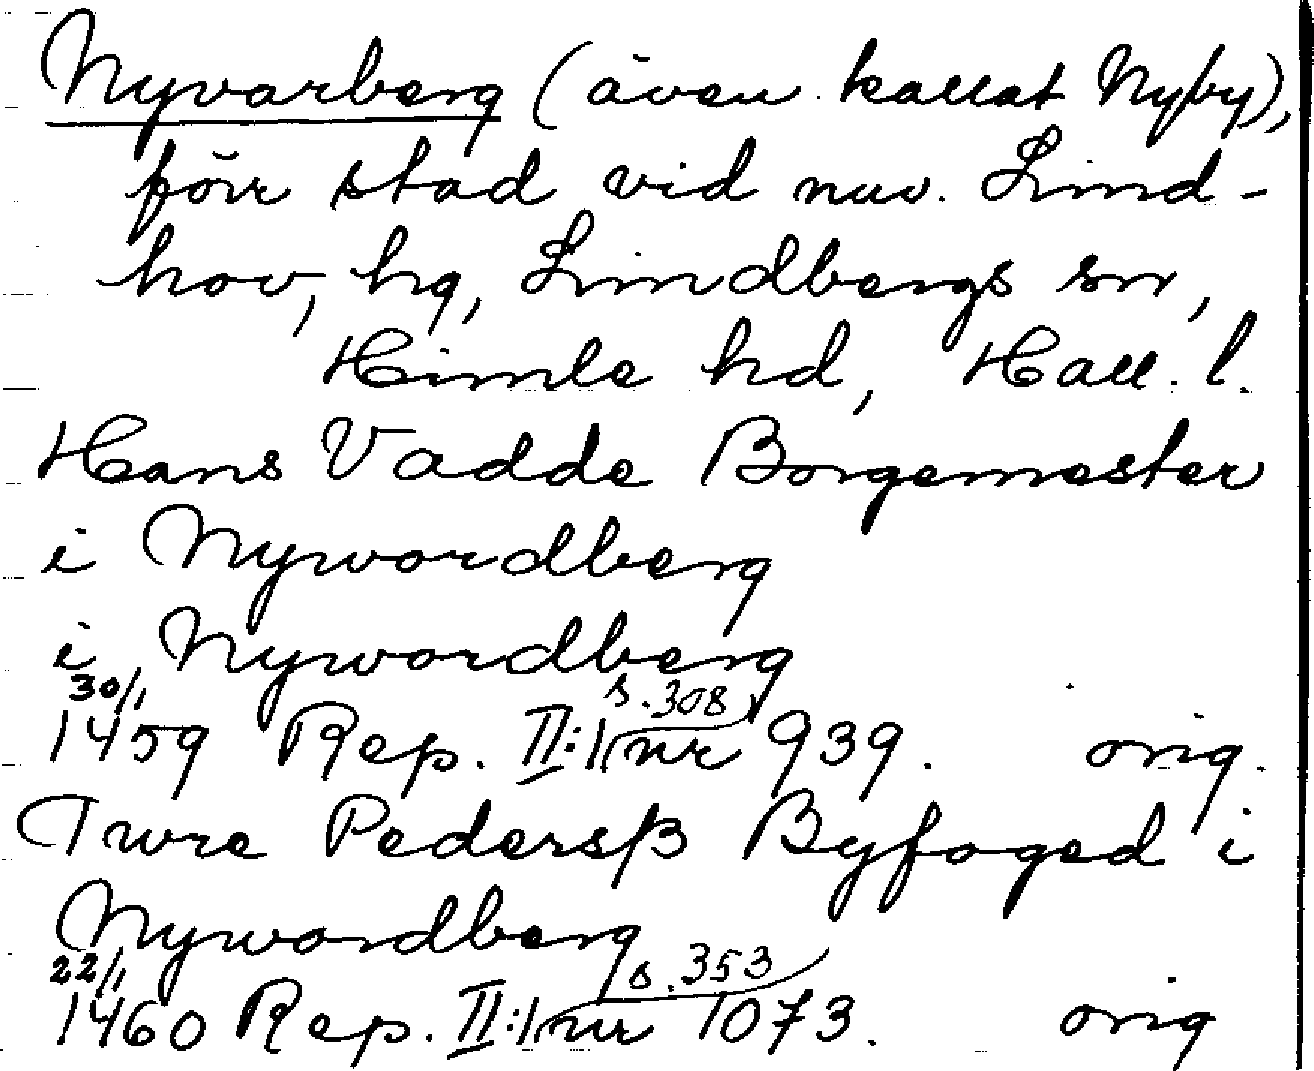 Nyvarberg (även kallat Nyby),
förr stad vid nuv. Lind-
hov, hg, Lindbergs sn,
Himle hd, Hall. l.
Hans Vadde Borgemester
i Nywordberg
i Nywordberg
30/1 s. 308
1459 Rep. II:1 nr 939. orig.
Twre Pedersß Byfoged i
Nywordberg
22/1 s. 353
1460 Rep. II:1 nr 1073. orig